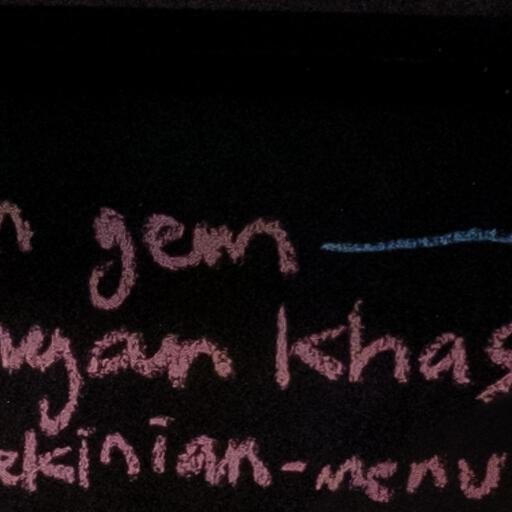 n gem
wyan khas
ekinian-menu